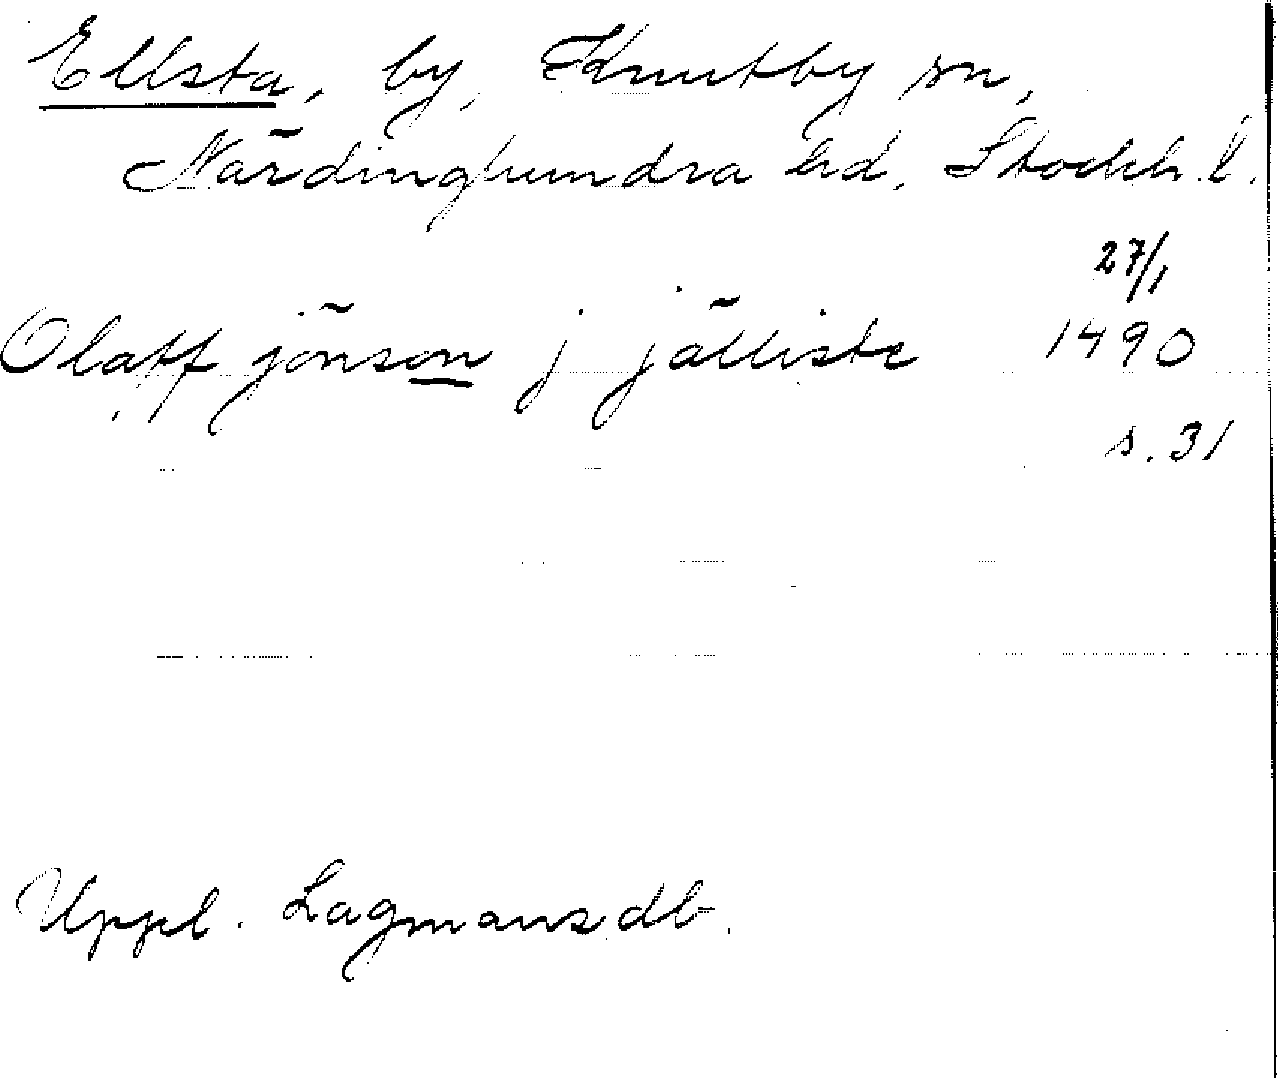 Ellsta, by, Knutby sn,
Närdinghundra hd, Stockh. l.
27/1
Olaff jönson j jälliste 1490
s. 31
Uppl. Lagmansdb.